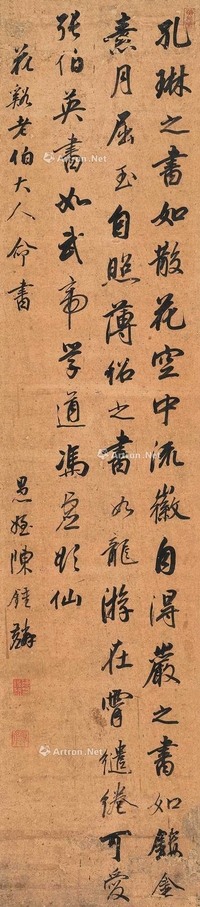 孔琳之書如散花空中流徽自得巖之書如鏤金
素月屈玉自照薄紹之書如龍游在霄繾綣可愛
張伯英書如武帝学道馮虛欲仙
谿老伯大人命書
愚姪陳鍾麟
Artron.Net
Artron.Net
Artron.Net
Artron.Net